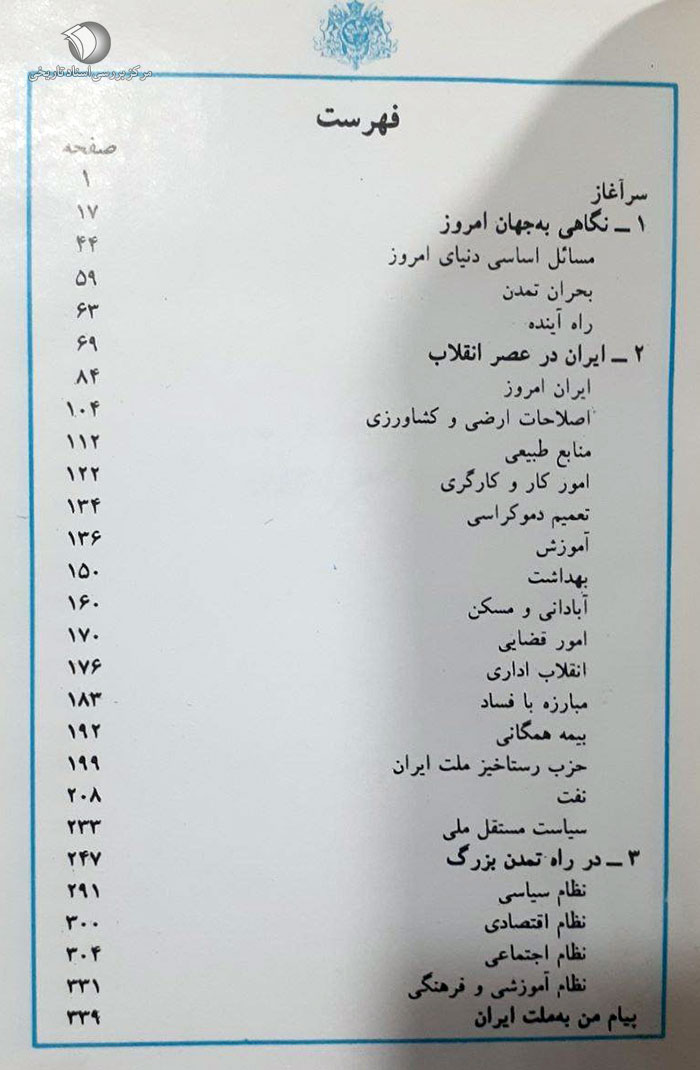 مرکز بررسی اسناد تاریخی
فهرست
صفحه
سرآغاز ۱
۱ – نگاهی به‌جهان امروز ۱۷
مسائل اساسی دنیای امروز ۴۴
بحران تمدن ۵۹
راه آینده ۶۳
۲ – ایران در عصر انقلاب ۶۹
ایران امروز ۸۴
اصلاحات ارضی و کشاورزی ۱۰۴
منابع طبیعی ۱۱۲
امور کار و کارگری ۱۲۲
تعمیم دموکراسی ۱۳۴
آموزش ۱۳۶
بهداشت ۱۵۰
آبادانی و مسکن ۱۶۰
امور قضایی ۱۷۰
انقلاب اداری ۱۷۶
مبارزه با فساد ۱۸۳
بیمه همگانی ۱۹۲
حزب رستاخیز ملت ایران ۱۹۹
نفت ۲۰۸
سیاست مستقل ملی ۲۳۳
۳ – در راه تمدن بزرگ ۲۴۷
نظام سیاسی ۲۹۱
نظام اقتصادی ۳۰۰
نظام اجتماعی ۳۰۴
نظام آموزشی و فرهنگی ۳۳۱
پیام من به‌ملت ایران ۳۳۹